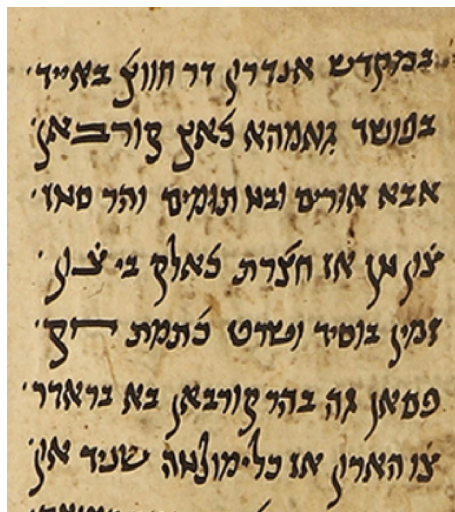 במקדש אנדרון דר חווץ באייד
בפושד גאמהא כאץ קורבאן
אבא אורים ובא תומים והר סאז
צון מן אז חצרת כאלק בי צון
זמין בוסיד ושרט כתמת חק
פסאן גה בהר קורבאן בא בראדר
צו הארון אז כלימולאה שניד און